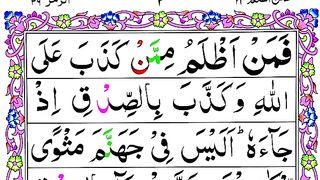 فَمَنۡ اَظۡلَمُ مِمَّنۡ كَذَبَ عَلَى
اللّٰهِ وَكَذَّبَ بِالصِّدۡقِ اِذۡ
جَآءَهٗ‌ؕ اَلَيۡسَ فِىۡ جَهَنَّمَ مَثۡوًى